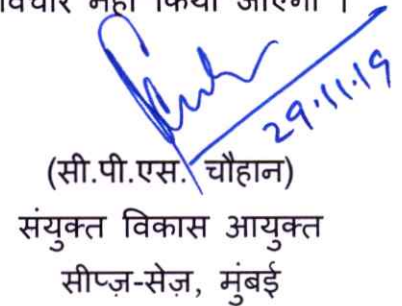 विचार नहीं किया जाएगा ।
29.11.19
(सी.पी.एस. चौहान)
संयुक्त विकास आयुक्त
सीप्ज़-सेज़, मुंबई